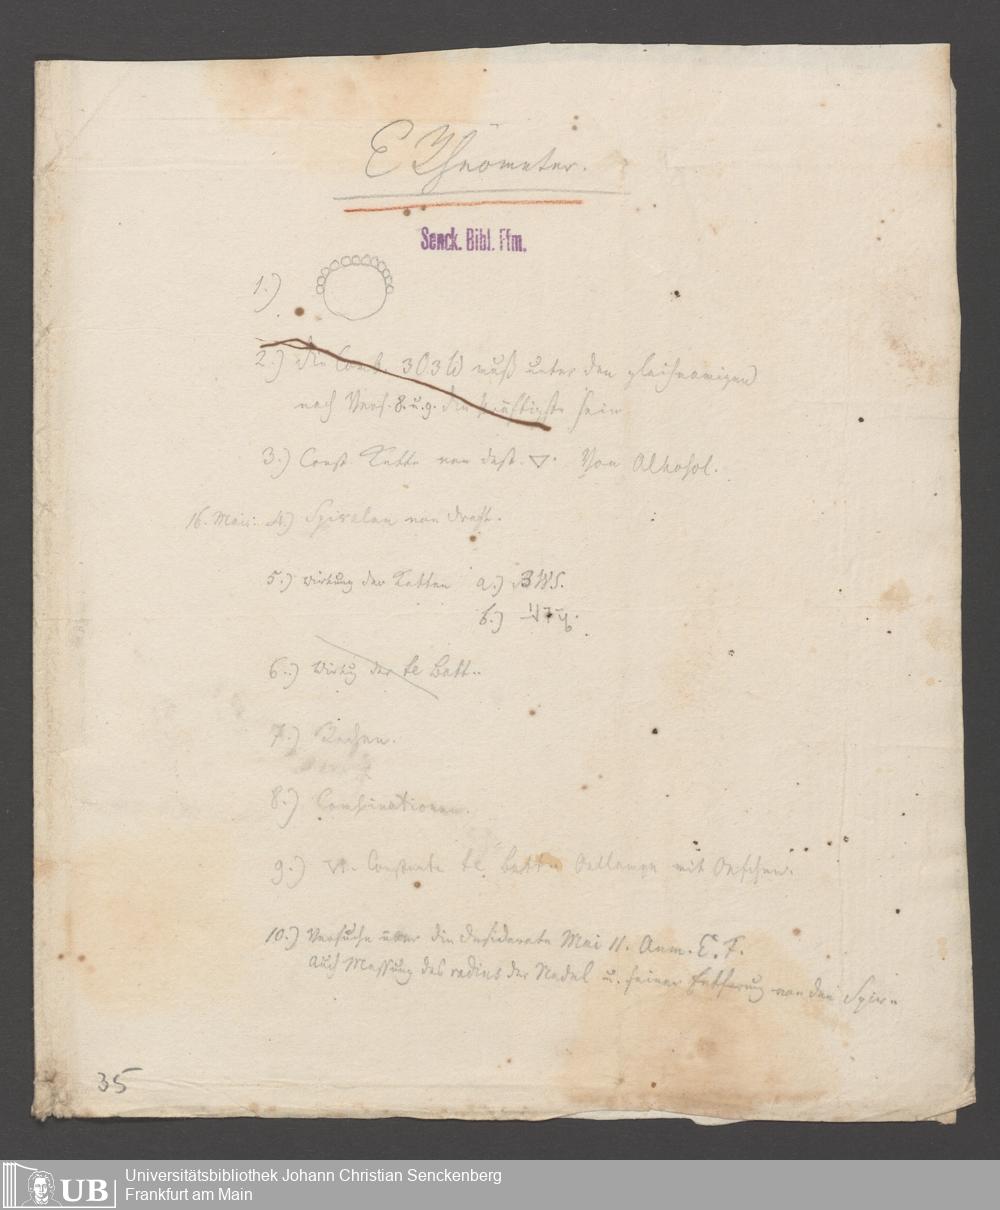 E Rheometer.
Senck. Bibl. Ffm.
1.)
2.) die Comb. 3O3W muß unter den gleichnamigen
nach Vers. 8. u. 9. die kräftigste sein
3.) Const Kette von dest. ▽. Von Alkohol.
16. Mai: 4.) Spiralen von Draht.
5.) Wirkung der Ketten a.) BWS.
b.)
6.) Wirkg der te Batt..
7.)
8.) Combinationen.
9.) Constante te Batt. mit
10.) Versuche über die Desiderate Mai 11. Anm. E. F.
Auch Messung des radius der Nadel u. seiner Entfernung von den Spir.
35
UB
Universitätsbibliothek Johann Christian Senckenberg
Frankfurt am Main